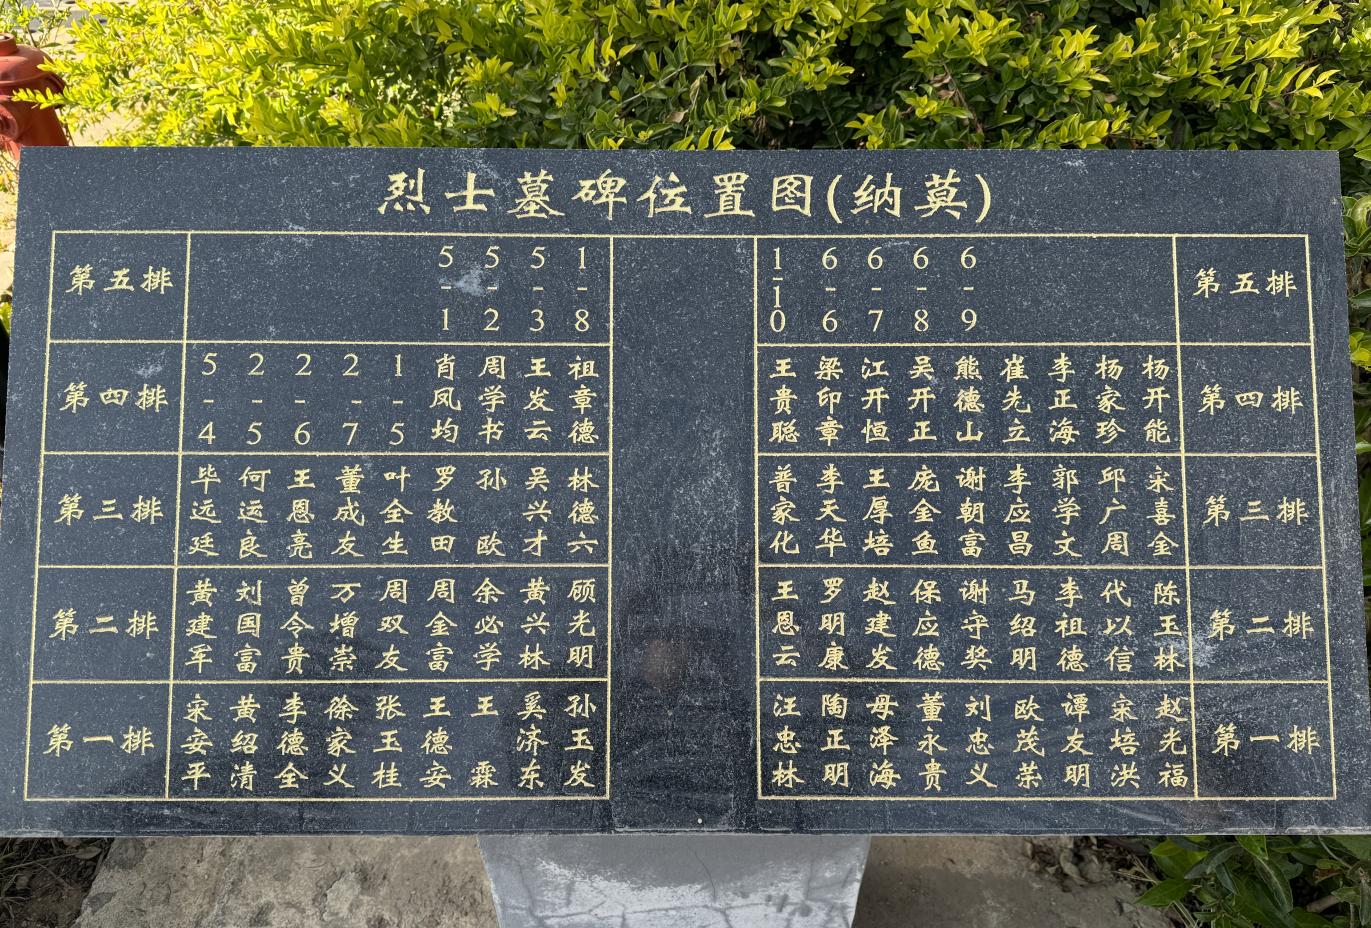 烈士墓碑位置图(纳莫)
第五排 5-1 5-2 5-3 1-8 1-10 6-6 6-7 6-8 6-9 第五排
第四排 5-4 2-5 2-6 2-7 1-5 肖凤均 周学书 王发云 祖章德 王贵聪 梁印章 江开恒 吴开正 熊德山 崔先立 李正海 杨家珍 杨开能 第四排
第三排 毕远廷 何运良 王恩亮 董成友 叶全生 罗教田 孙欧 吴兴才 林德六 普家化 李天华 王厚培 庞金鱼 谢朝富 李应昌 郭学文 邱广周 宋喜金 第三排
第二排 黄建军 刘国富 曾令贵 万增崇 周双友 周金富 余必学 黄兴林 顾光明 王恩云 罗明康 赵建发 保应德 谢守奖 马绍明 李祖德 代以信 陈玉林 第二排
第一排 宋安平 黄绍清 李德全 徐家义 张玉桂 王德安 王霖 奚济东 孙玉发 汪忠林 陶正明 母泽海 董永贵 刘忠义 欧茂荣 谭友明 宋培洪 赵光福 第一排